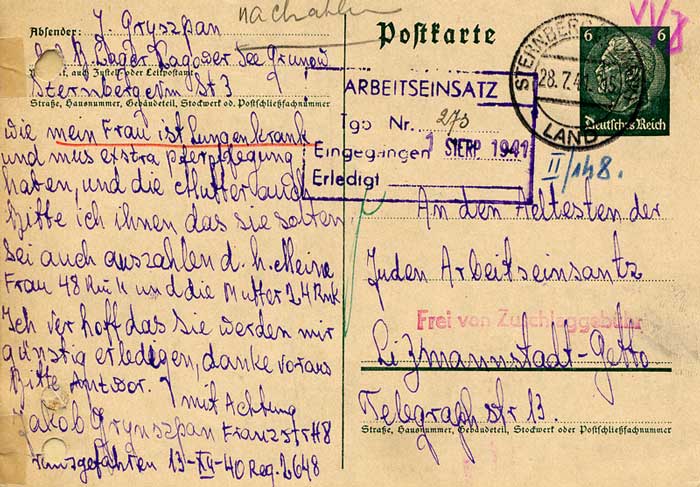 nachzahlen
Absender: J. Gryszpan
Lager Lagower See Grunow
Sternberger St 3
Straße, Hausnummer, Gebäudeteil, Stockwerk od. Postschließfachnummer
wie mein Frau ist Lungenkrank
und mus exstra pferpflegung
haben, und die Mutter auch
Bitte ich ihnen das sie solten
sei auch auszahlen d. h. Meine
Frau 48 Rmk und die Mutter 24 Rmk
Ich ver hoff das sie werden mir
günstig erledegen, danke voraus
Bitte Antwor.
mit Achtung
Jakob Grynszpan Franzstr 48
ausgefahren 13-XII-40 Reg. 2648
Postkarte
STERNBERG
28.7.41
LAND
6 6
Deutsches Reich
ARBEITSEINSATZ
Tgb Nr. 273
Eingegangen 1 SIERP 1941
Erledigt
II/148.
An den Aeltesten der
Juden Arbeitseinsantz
Frei von Zuschlaggebühr
Lizmannstadt-Getto
Telegraph str 13.
Straße, Hausnummer, Gebäudeteil, Stockwerk oder Postschließfachnummer